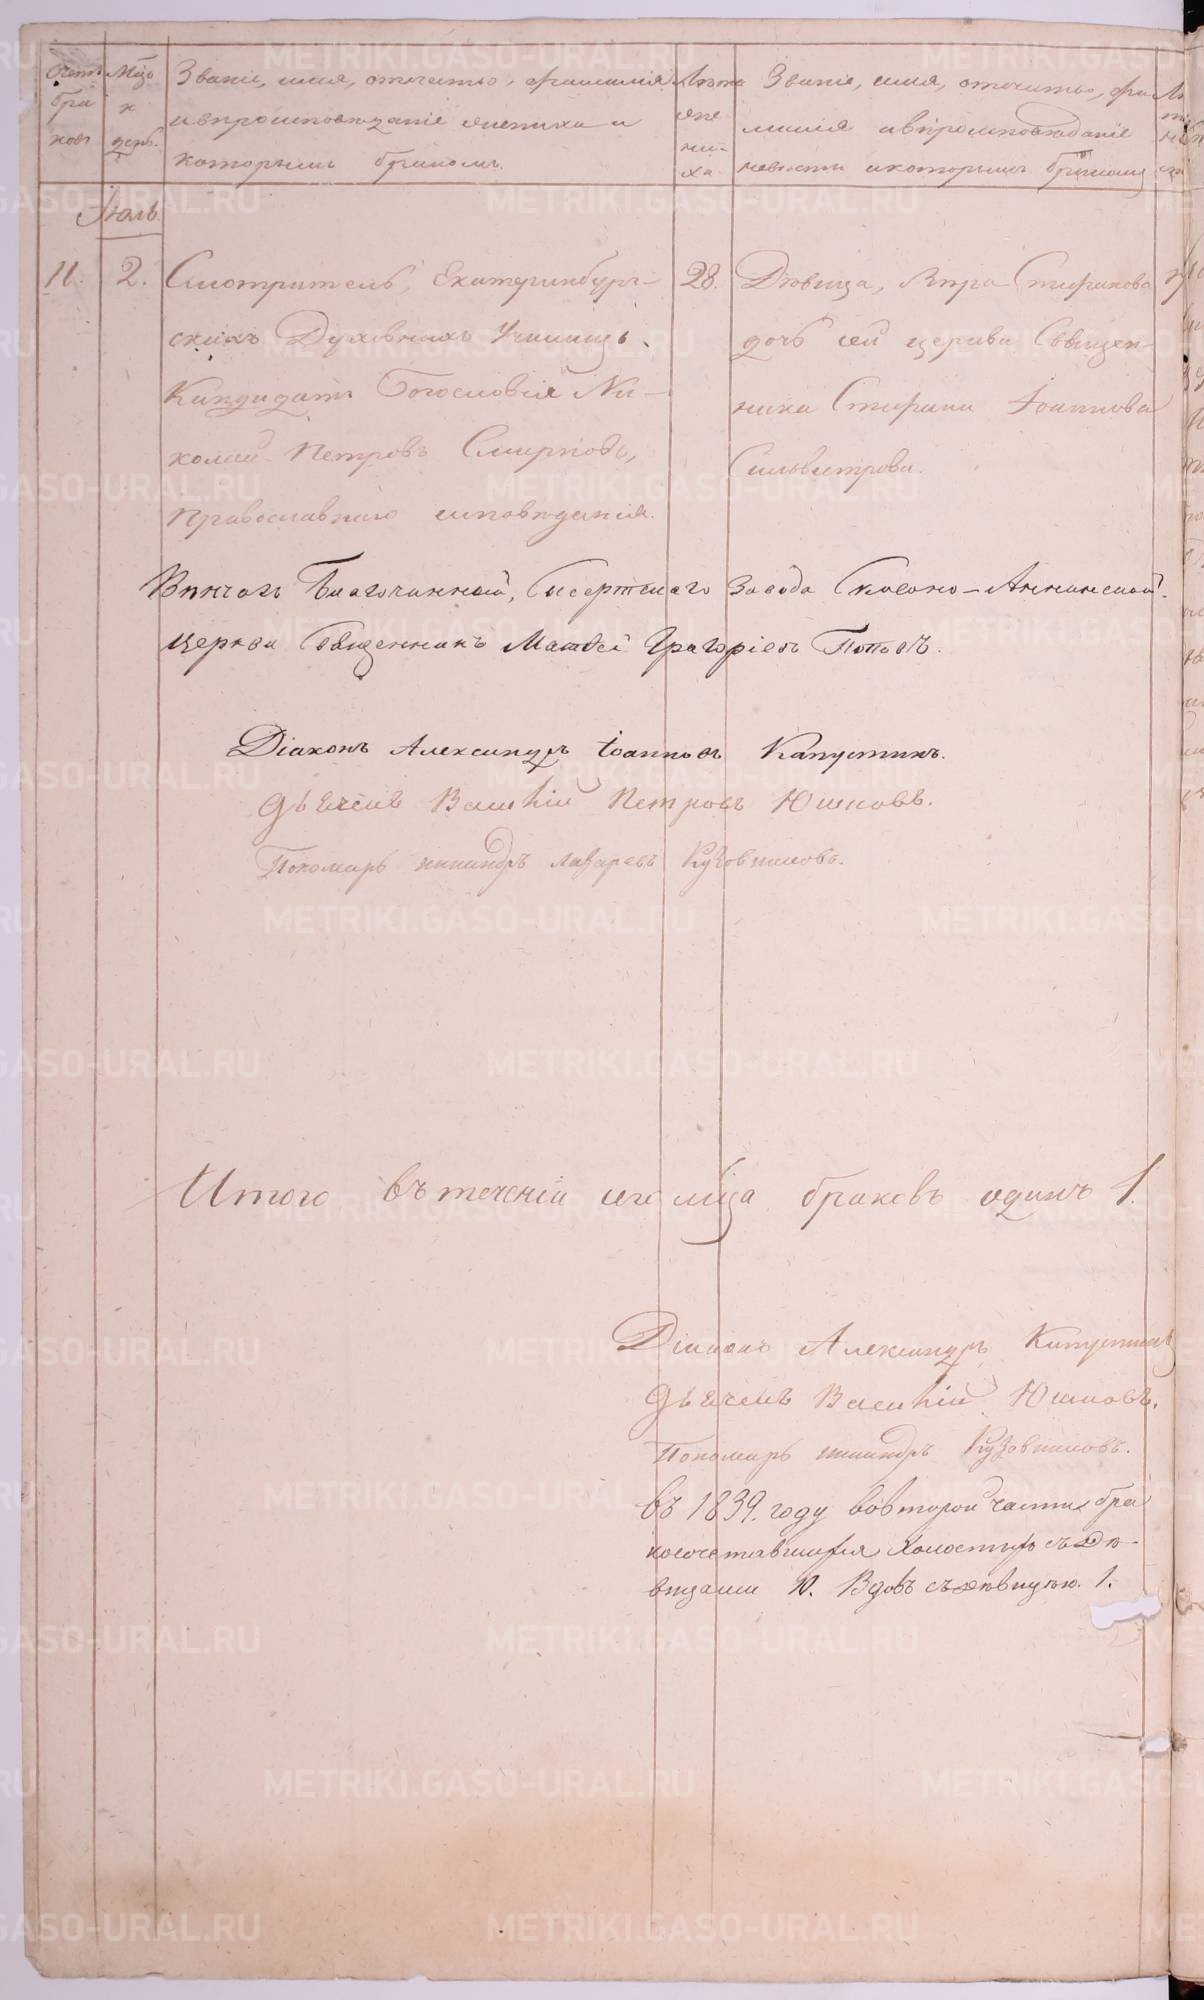 Счетъ браковъ
Мѣсяцъ и день.
Званіе, имя, отечество, фамилія
и вѣроисповѣданіе жениха и
которымъ бракомъ.
Лѣта жениха
Званіе, имя, отечество, фа-
милія и вѣроисповѣданіе
невѣсты и которымъ бракомъ
Іюль.
11.
2.
Смотритель, Екатеринбург-
скихъ Духовныхъ Училищь,
Кандидатъ Богословія Ни-
колай Петровъ Смирновъ,
Православнаго исповѣданія.
28.
Дѣвица, Вѣра Стефанова
дочь сей церкви Священ-
ника Стефана Іоаннова
Сильвестрова.
Вѣнчалъ Благочинный, Сысертскаго Завода Симеоно-Аннинской
церкви Священникъ Матѳей Григоріевъ Поповъ.
Діаконъ Александръ Іоанновъ Капустинъ.
Дьячекъ Василій Петровъ Юшковъ.
Пономарь Никандръ Лазаревъ Кузовниковъ.
Итого въ теченіи сего мѣсяца браковъ одинъ 1.
Діаконъ Александръ Капустинъ
Дьячекъ Василій Юшковъ.
Пономарь Никандръ Кузовниковъ.
въ 1839. году во второй части бра
косочетавшихся Холостыхъ съ Дѣ-
вицами 10. Вдовъ съ дѣвицею. 1.
METRIKI.GASO-URAL.RU